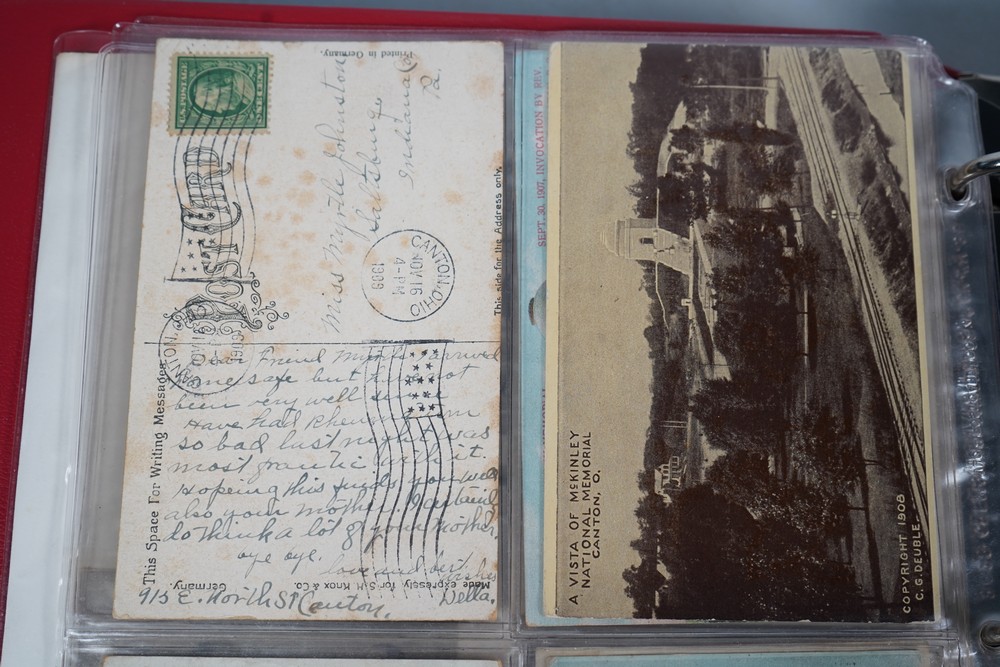 U.S. POSTAGE
ONE CENT
Printed in Germany.
POST CARD
Miss Myrtle Johnston
Saltsburg
Indiana Co
Pa.
CANTON, OHIO
NOV 16
4-PM
1909
This side for the Address only.
CANTON,
1909
This Space For Writing Messages.
Dear Friend Myrtle arrived
home safe but have not
been very well since
Have had Rheum
so bad last night was
most frantic with it.
Hopeing this finds you well
also your mother.
to think a lot of your mother,
oye oye.
love and best wishes
Della.
915 E. North St Canton.
Made expressly for S.H. Knox & Co.
Germany.
SEPT. 30, 1907, INVOCATION BY REV.
MEMORIAL
A VISTA OF McKINLEY
NATIONAL MEMORIAL
CANTON, O.
COPYRIGHT 1908
C. G. DEUBLE.